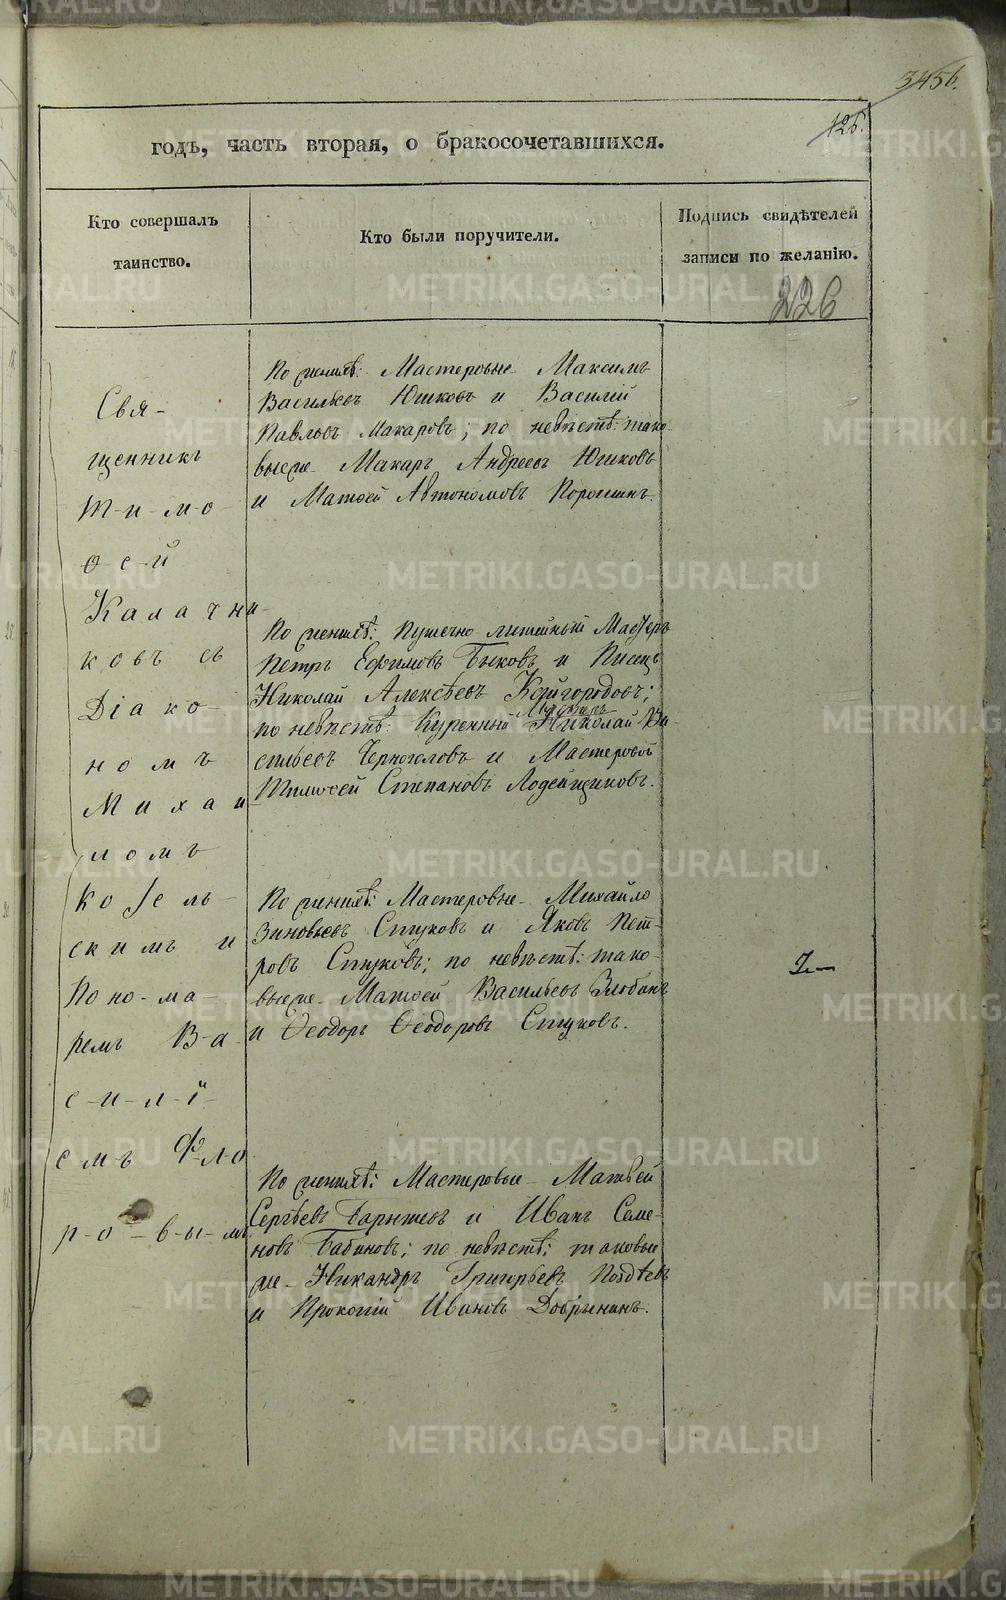 345б.
126.
годъ, часть вторая, о бракосочетавшихся.
Кто совершалъ
таинство.
Кто были поручители.
Подпись свидѣтелей
записи по желанію.
226
Свя-
щенникъ
Т-и-мо-
ѳ-е-й
Калачни-
ковъ съ
Діако-
номъ
Михаи-
ломъ
Козель-
скимъ и
Поно-ма-
ремъ В-а-
с-и-л-і-
емъ Фло-
р-о-в-ы-мъ
По женихѣ: Мастеровые Максимъ
Васильевъ Юшковъ и Василій
Павловъ Макаровъ; по невѣстѣ: тако-
выеже Макаръ Андреевъ Юшковъ
и Матѳей Автономовъ Порошинъ.
По женихѣ: Пушечно литейный Мастеръ
Петръ Ефимовъ Быковъ и Писецъ
Николай Алексѣевъ Кайгородовъ;
по невѣстѣ: Куренный Мастеръ Николай Ва-
сильевъ Черноголовъ и Мастеровой
Тимоѳей Степановъ Лодейщиковъ.
По женихѣ: Мастеровые Михайло
Зиновьевъ Стуковъ и Яковъ Пет-
ровъ Стуковъ; по невѣстѣ: тако-
выеже Матѳей Васильевъ Злобинъ
и Ѳеодоръ Ѳеодоровъ Стуковъ.
По женихѣ: Мастеровые Матвей
Сергѣевъ и Иванъ Семе-
новъ Бабиновъ; по невѣстѣ: таковые
же Никандръ Григорьевъ Поздѣевъ
и Прокопій Ивановъ Добрынинъ.
METRIKI.GASO-URAL.RU